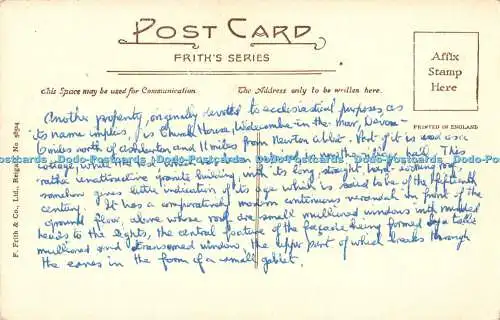 POST CARD
FRITH'S SERIES
This Space may be used for Communication.
The Address only to be written here.
Affix
Stamp
Here
PRINTED IN ENGLAND
F. Frith & Co., Ltd., Reigate. No.
Another property, originally devoted to ecclesiastical purposes, as
its name implies, is Church House, Widecombe-in-the-Moor, Devon —
6 miles north of Ashburton and 11 miles from Newton Abbot. Part of it is used as a
cottage, while the the This
rather unattractive granite building, with its long straight hard-looking
somehow gives little indication of its age which is said to be of the fifteenth
century. It has a comparatively modern continuous verandah in front of the
ground floor, above whose roof are small mullioned windows with moulded
heads to the lights, the central feature of the façade being formed by a taller
mullioned and transomed window, the upper part of which breaks through
the eaves in the form of a small gablet.
Dodo-Postcards Dodo-Postcards Dodo-Postcards Dodo-Postcards